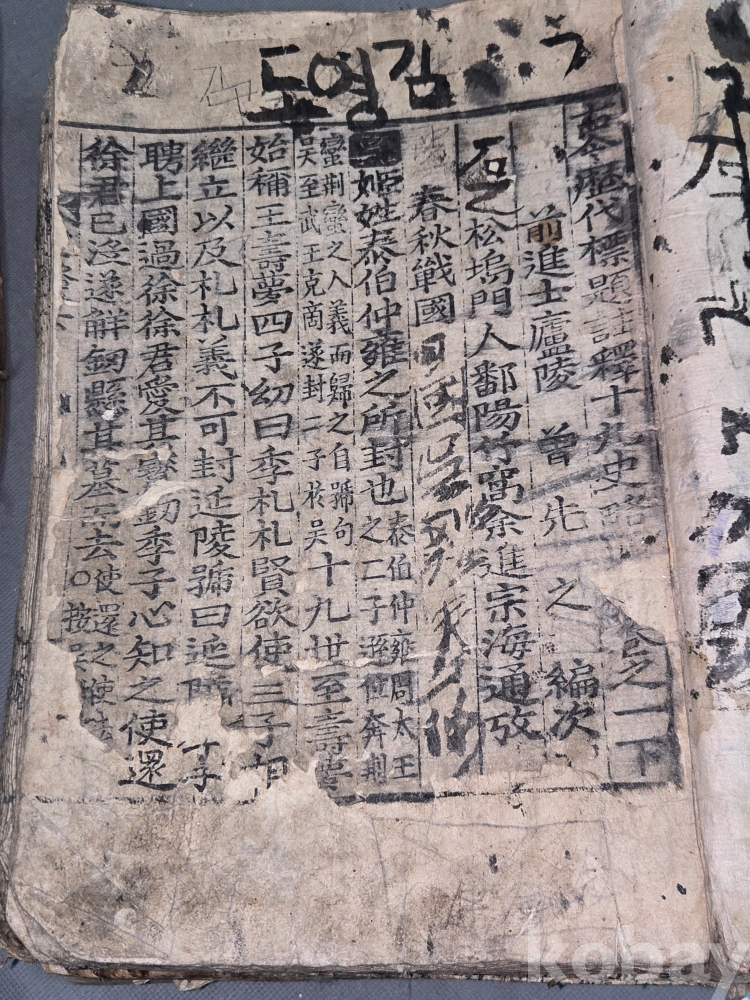 김영
古今歷代標題註釋十九史略 卷之一下
前進士廬陵 曾先之 編次
松塢門人鄱陽竹窩余進宗海通攷
春秋戰國
吳姬姓泰伯仲雍之所封也 泰伯仲雍周太王
之二子遜位奔荊
蠻荊蠻之人義而歸之自號句
吳至武王克商遂封二子於吳 十九世至壽夢
始稱王壽夢四子幼曰季札札賢欲使三子相
繼立以及札札義不可封延陵號曰延陵 子
聘上國過徐徐君愛其寶劍季子心知之使還
徐君已沒遂解劒懸其墓而去○使還之使去
按吳
kobay